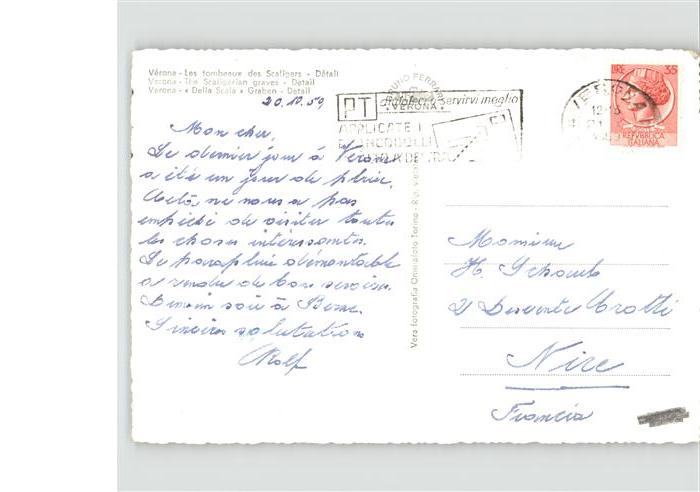 Vérona - Les tombeaux des Scaligers - Détail
Verona - The Scaligerian graves - Detail
Verona - « Della Scala » Graben - Detail
20.10.59
Mon cher,
Le dernier jour à Verona
a été un jour de pluie.
Cela ne nous a pas
empêché de visiter toutes
les choses intéressantes.
Le parapluie démontable
a rendu de bons services.
Demain soir à Berne.
Sincères salutations
Rolf
Vera fotografia Omniafoto Torino
BRUNO FERRARI
VERONA
PT
aiutateci a servirvi meglio
APPLICATE I
FRANCOBOLLI
VERONA
12-13
21
35
REPVBBLICA
ITALIANA
Monsieur
H. Schaub
2 Descente Crotti
Nice
Francia